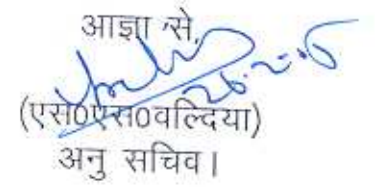 आज्ञा से,
(एस0एस0वल्दिया)
अनु सचिव।